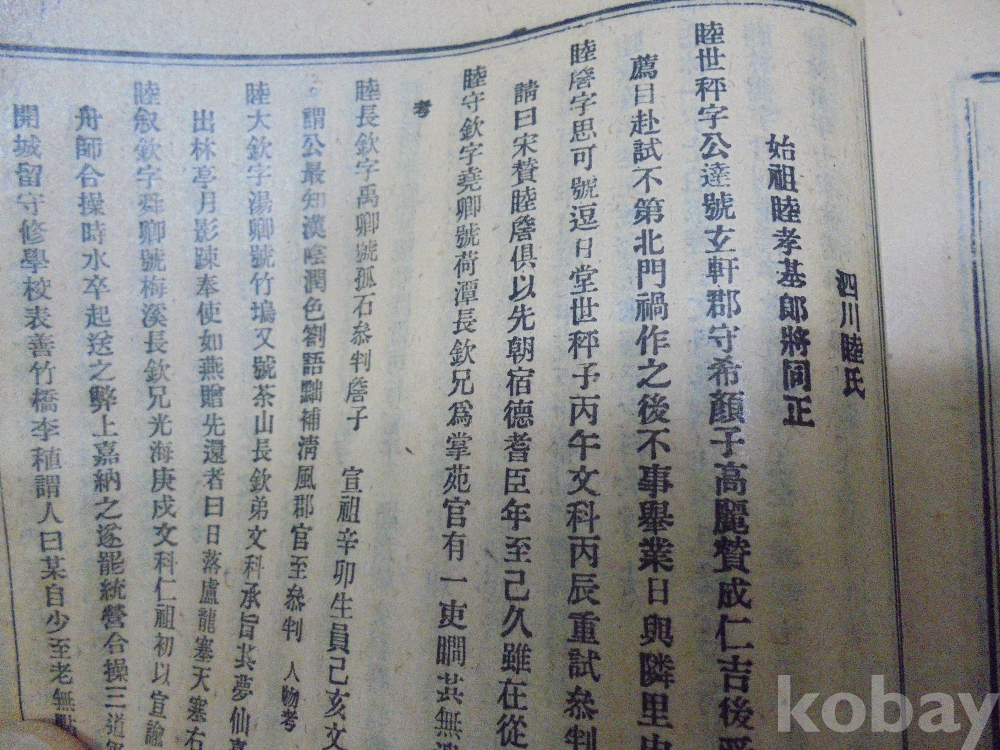 泗川睦氏
始祖睦孝基郎將同正
睦世秤字公達號玄軒郡守希顏子高麗贊成仁吉後
薦目赴試不第北門禍作之後不事舉業日與隣里
睦詹字思可號逗日堂世秤子丙午文科丙辰重試參判
請曰宋贊睦詹俱以先朝宿德耆臣年至己久雖在從
睦守欽字堯卿號荷潭長欽兄爲掌苑官有一吏瞷其無
考
睦長欽字禹卿號孤石參判詹子 宣祖辛卯生員己亥文
謂公最知漢陰潤色劉語黜補淸風郡官至參判 人物考
睦大欽字湯卿號竹塢又號茶山長欽弟文科承旨其夢仙
出林亭月影踈奉使如燕贈先還者曰日落盧龍塞天塞右
睦敘欽字舜卿號梅溪長欽兄光海庚戍文科仁祖初以宣諭
舟師合操時水卒起送之弊上嘉納之遂罷統營合操三道
開城留守修學校表善竹橋李種謂人曰某自少至老無
kobay